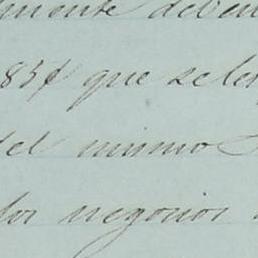 mente deven
que se le
del mismo
los negocios